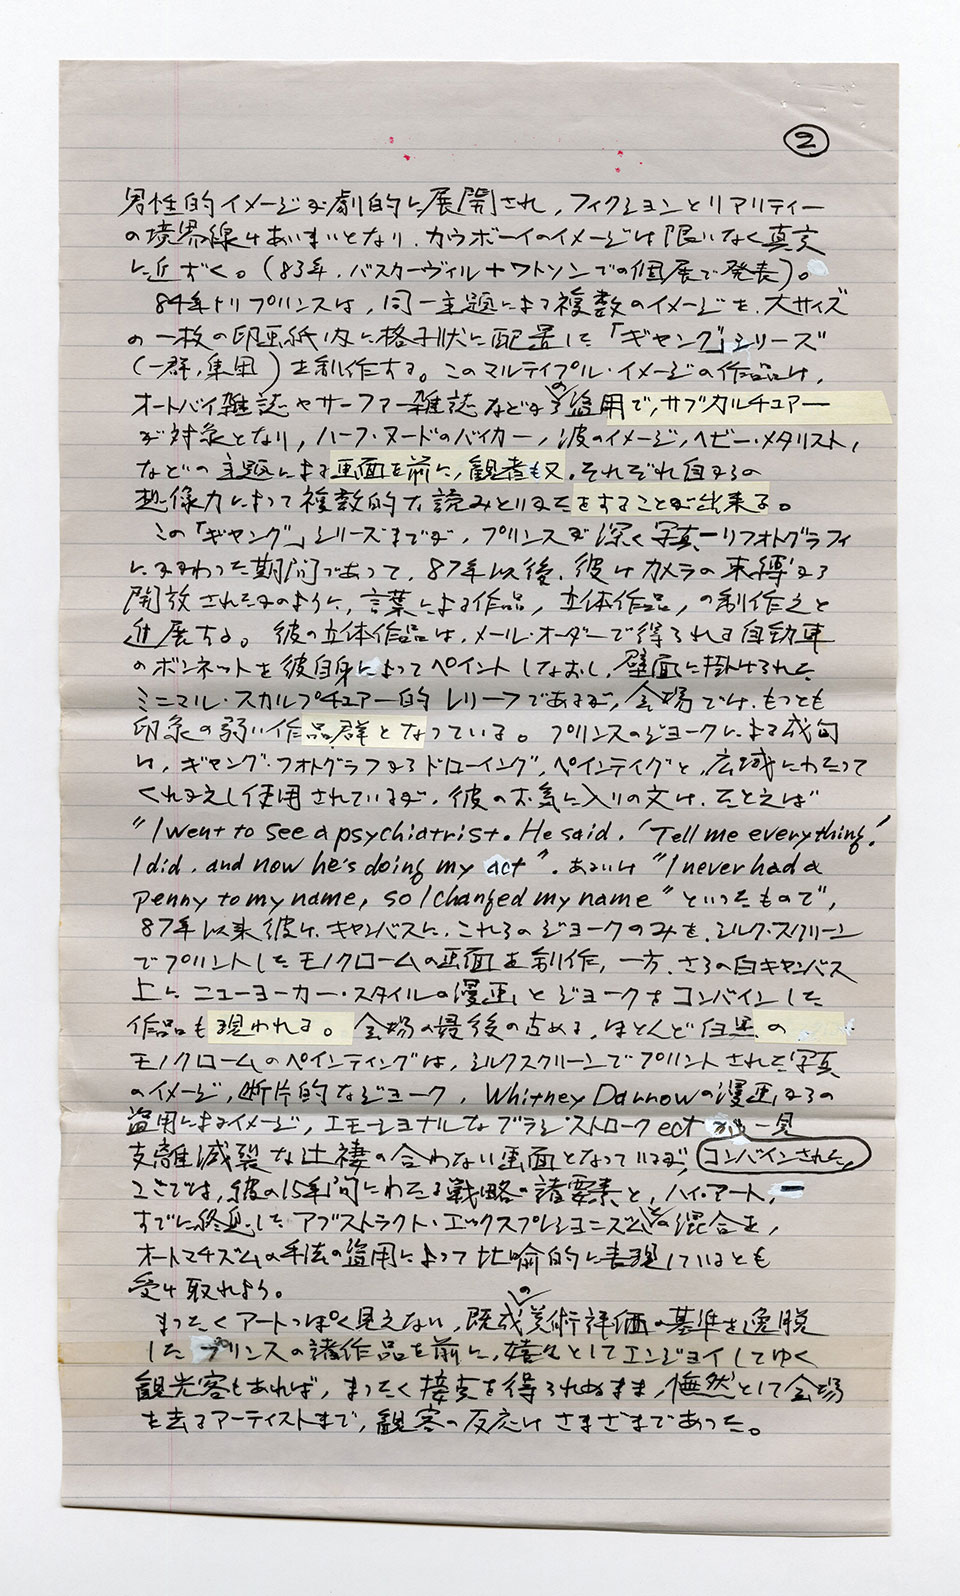 ②
男性的イメージが劇的に展開され, フィクションとリアリティー
の境界線はあいまいとなり、カウボーイのイメージは限りなく真実
に近ずく。(83年、バスカーヴィル+ワトソンでの個展で発表)。
84年よりプリンスは, 同一主題によって複数のイメージを、大サイズ
の一枚の印画紙内に格子状に配置した「ギャング」シリーズ
(一群,集団)を制作する。このマルティプル・イメージの作品は,
オートバイ雑誌やサーファー雑誌などからの盗用で,サブカルチュアー
が対象となり, ハーフ・ヌードのバイカー, 波のイメージ, ヘビー・メタリスト,
などの主題による画面を前に, 観者も又、それぞれ自からの
想像力によって複数的な読みとりかたをすることが出来る。
この「ギャング」シリーズまでが, プリンスが深く写真―リフォトグラフィ
にかかわった期間であって、87年以後、彼はカメラの束縛から
開放されたかのように, 言葉による作品, 立体作品, の制作えと
進展する。彼の立体作品は,メール・オーダーで得られる自動車
のボンネットを彼自身によってペイントしなおし, 壁面に掛けられた
ミニマル・スカルプチュアー的レリーフであるが, 会場では、もっとも
印象の弱い作品群となっている。プリンスのジョークによる成句
は, ギャング・フォトグラフからドローイング, ペインティグと, 広域にわたって
くりかえし使用されているが、彼のお気に入りの文は、たとえば
"I went to see a psychiatrist. He said, 'Tell me everything.'
I did, and now he's doing my act". あるいは "I never had a
penny to my name, so I changed my name" といったもので,
87年以来彼は、キャンバスに、これらのジョークのみを、シルク・スクリーン
でプリントしたモノクロームの画面を制作, 一方、さらの白キャンバス
上に ニューヨーカー・スタイルの漫画とジョークをコンバインした
作品も現われる。会場の最後の占める, ほとんど白黒の
モノクロームのペインティングは, シルクスクリーンでプリントされた写真
のイメージ, 断片的なジョーク, Whitney Darrowの漫画からの
盗用によるイメージ, エモーショナルなブラシストローク ect が 一見
支離滅裂な辻褄の合わない画面となっているが, コンバインされた,
ここでは, 彼の15年間にわたる戦略の諸要素と, ハイ・アート,
すでに終息したアブストラクト・エックスプレショニズムとの混合を,
オートマチズムの手法の盗用によって比喩的に表現しているとも
受け取れよう。
まったくアートっぽく見えない, 既成の美術評価の基準を逸脱
したプリンスの諸作品を前に, 嬉々としてエンジョイしてゆく
観光客もあれば, まったく接点を得られぬまま, 憮然として会場
を去るアーティストまで, 観客の反応はさまざまであった。